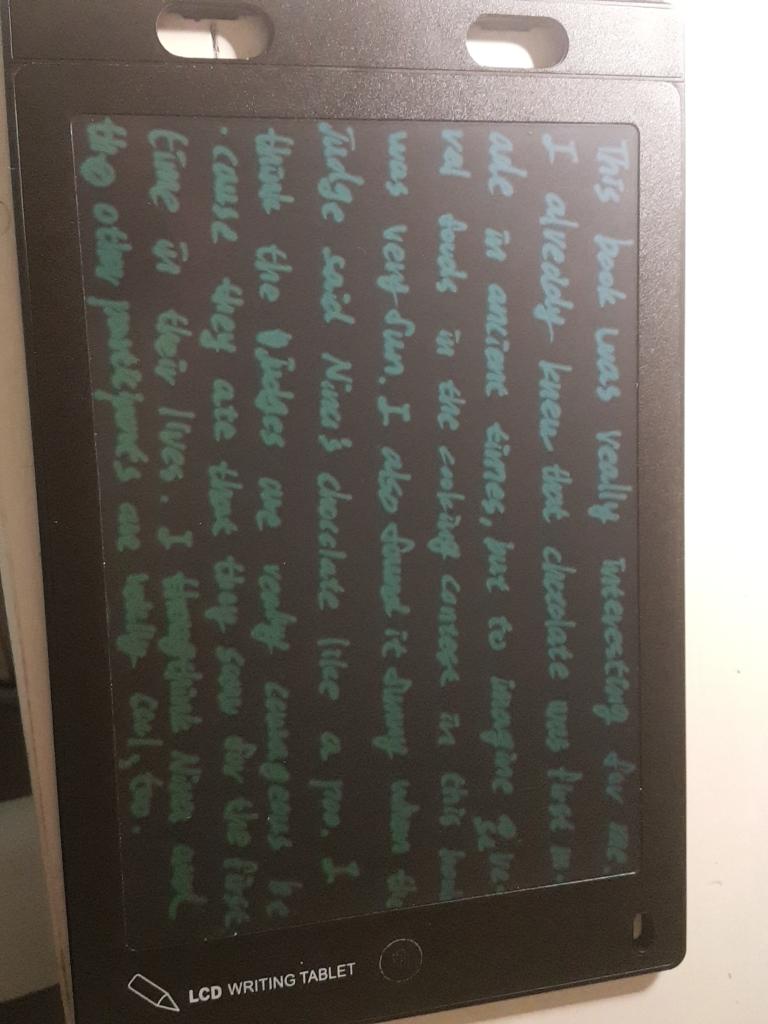 This book was really Interesting for me.
I alreddy knew that chocolate was first m-
ade in ancient times, but to imagine
val foods in the cooking contest in this book
was very fun. I also found it funny when the
Judge said Nina's chocolate like a poo. I
think the Judges are really courageous be
-cause they ate that they saw for the first
time in their lives. I think Nina and
the other participants are really cool, too.
LCD WRITING TABLET